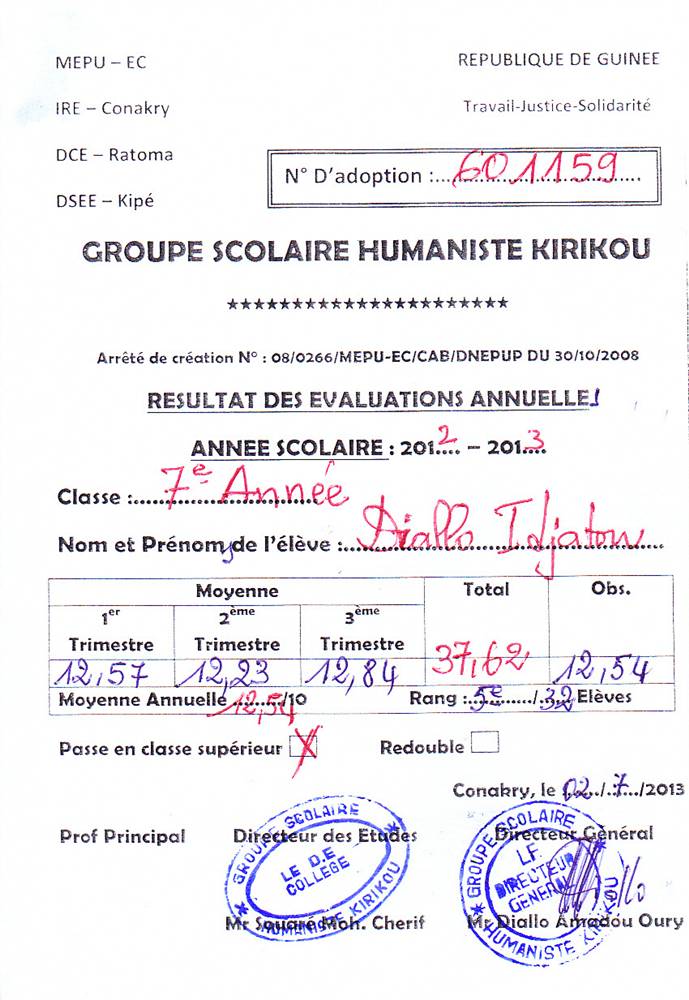 MEPU – EC
REPUBLIQUE DE GUINEE
IRE – Conakry
Travail-Justice-Solidarité
DCE – Ratoma
N° D'adoption :....601159....
DSEE – Kipé
GROUPE SCOLAIRE HUMANISTE KIRIKOU
**********************
Arrêté de création N° : 08/0266/MEPU-EC/CAB/DNEPUP DU 30/10/2008
RESULTAT DES EVALUATIONS ANNUELLES
ANNEE SCOLAIRE : 2012 – 2013
Classe :....7e Année
Nom et Prénoms de l'élève :....Diallo Idjatou....
Moyenne Total Obs.
1er Trimestre 2ème Trimestre 3ème Trimestre
12,57 12,23 12,84 37,62 12,54
Moyenne Annuelle 12,54/10 Rang :..5e...../.32 Elèves
Passe en classe supérieur X Redouble
Conakry, le 02../..7../2013
Prof Principal Directeur des Etudes Directeur Général
GROUPE SCOLAIRE HUMANISTE KIRIKOU
LE D.E
COLLEGE
GROUPE SCOLAIRE HUMANISTE KIRIKOU
LE
DIRECTEUR
GENERAL
Mr Souaré Moh. Cherif Mr Diallo Amadou Oury